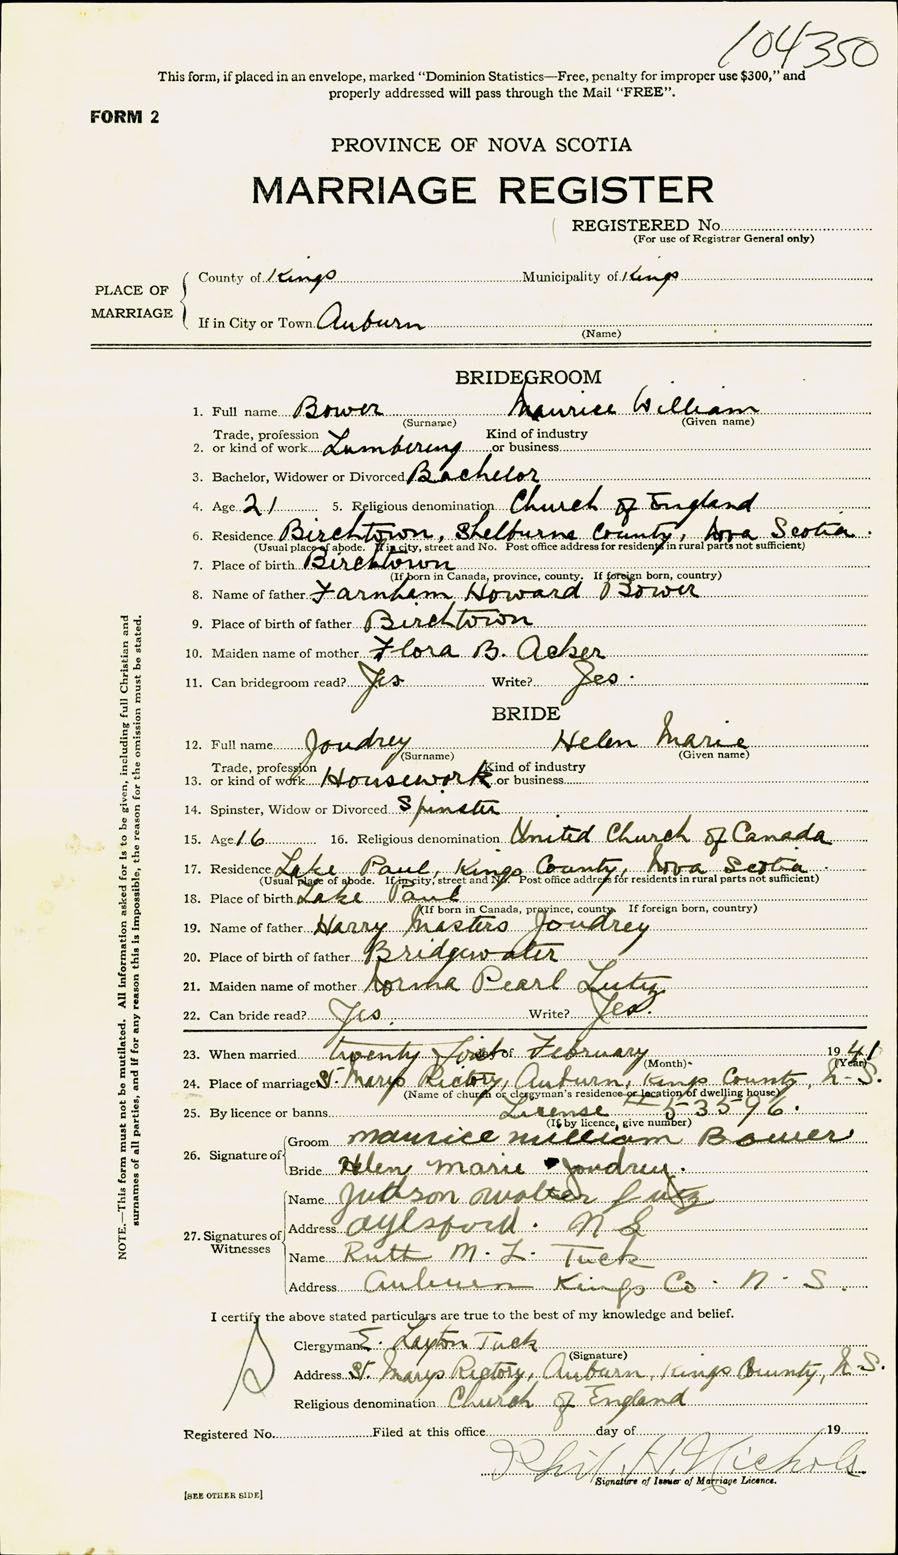 104350
This form, if placed in an envelope, marked "Dominion Statistics—Free, penalty for improper use $300," and
properly addressed will pass through the Mail "FREE".
FORM 2
PROVINCE OF NOVA SCOTIA
MARRIAGE REGISTER
REGISTERED No.
(For use of Registrar General only)
PLACE OF MARRIAGE
County of Kings Municipality of Kings
If in City or Town Auburn
(Name)
BRIDEGROOM
1. Full name Bower Maurice William
(Surname) (Given name)
2. Trade, profession or kind of work Lumbering Kind of industry or business
3. Bachelor, Widower or Divorced Bachelor
4. Age 21 5. Religious denomination Church of England
6. Residence Birchtown, Shelburne County, Nova Scotia.
(Usual place of abode. If in city, street and No. Post office address for residents in rural parts not sufficient)
7. Place of birth Birchtown
(If born in Canada, province, county. If foreign born, country)
8. Name of father Farnham Howard Bower
9. Place of birth of father Birchtown
10. Maiden name of mother Flora B. Acker
11. Can bridegroom read? Yes Write? Yes.
BRIDE
12. Full name Joudrey Helen Marie
(Surname) (Given name)
13. Trade, profession or kind of work Housework Kind of industry or business
14. Spinster, Widow or Divorced Spinster
15. Age 16 16. Religious denomination United Church of Canada
17. Residence Lake Paul, Kings County, Nova Scotia
(Usual place of abode. If in city, street and No. Post office address for residents in rural parts not sufficient)
18. Place of birth Lake Paul
(If born in Canada, province, county. If foreign born, country)
19. Name of father Harry Masters Joudrey
20. Place of birth of father Bridgewater
21. Maiden name of mother Norma Pearl Lutz
22. Can bride read? Yes. Write? Yes.
23. When married twenty first day of February 1941
(Month) (Year)
24. Place of marriage St. Marys Rectory, Auburn, Kings County, N.S.
(Name of church or clergyman's residence or location of dwelling house)
25. By licence or banns License 53596.
(If by licence, give number)
26. Signature of
Groom Maurice William Bower
Bride Helen Marie Joudrey.
27. Signatures of Witnesses
Name Judson Walter Lutz
Address Aylsford. N S
Name Ruth M. L. Tuck
Address Auburn Kings Co. N. S.
I certify the above stated particulars are true to the best of my knowledge and belief.
Clergyman E. Layton Tuck
(Signature)
Address St. Marys Rectory, Auburn, Kings County, N.S.
Religious denomination Church of England
Registered No. Filed at this office day of 19
Phil. H. Nichols
Signature of Issuer of Marriage Licence.
[SEE OTHER SIDE]
NOTE.—This form must not be mutilated. All information asked for is to be given, including full Christian and
surnames of all parties, and if for any reason this is impossible, the reason for the omission must be stated.